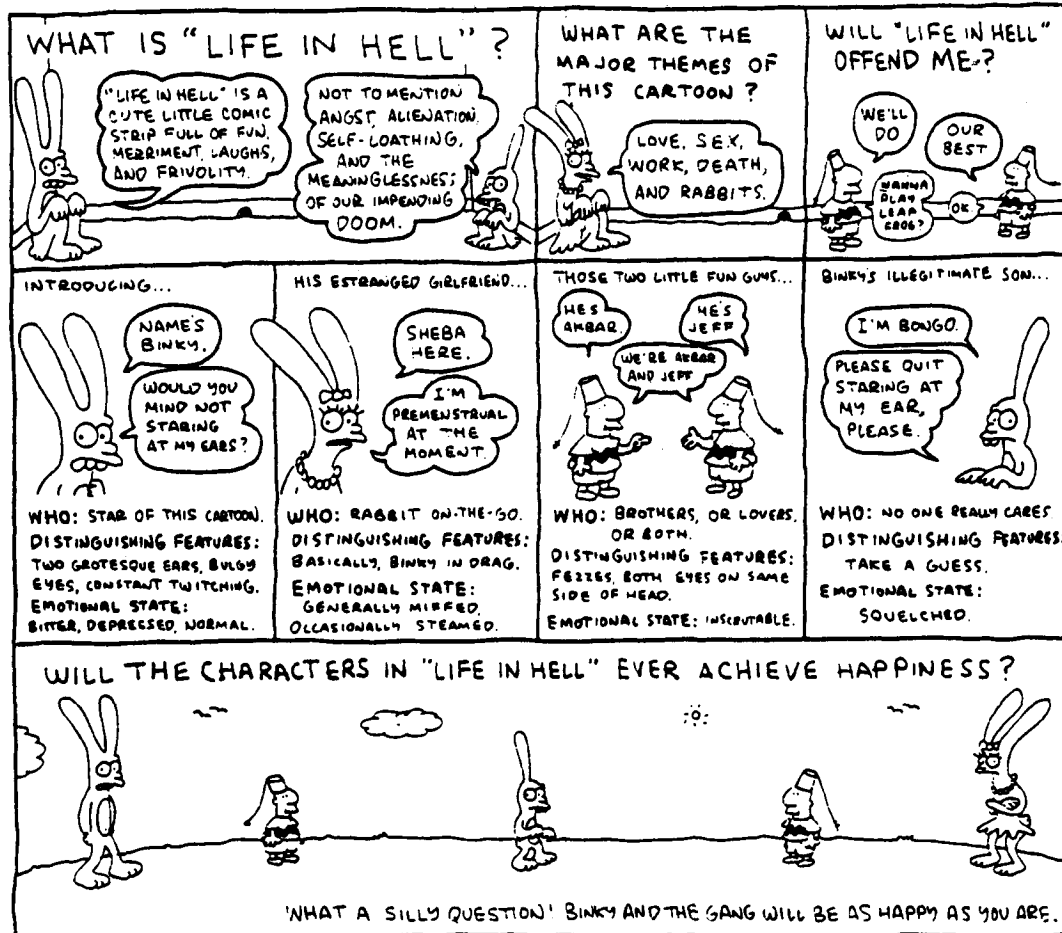 WHAT IS "LIFE IN HELL"?
"LIFE IN HELL" IS A
CUTE LITTLE COMIC
STRIP FULL OF FUN,
MERRIMENT, LAUGHS,
AND FRIVOLITY.
NOT TO MENTION
ANGST, ALIENATION,
SELF-LOATHING,
AND THE
MEANINGLESSNESS
OF OUR IMPENDING
DOOM.
WHAT ARE THE
MAJOR THEMES OF
THIS CARTOON?
LOVE, SEX,
WORK, DEATH,
AND RABBITS.
WILL "LIFE IN HELL"
OFFEND ME?
WE'LL
DO
OUR
BEST
WANNA
PLAY
LEAP
FROG?
OK
INTRODUCING...
NAME'S
BINKY.
WOULD YOU
MIND NOT
STARING
AT MY EARS?
WHO: STAR OF THIS CARTOON.
DISTINGUISHING FEATURES:
TWO GROTESQUE EARS, BULGY
EYES, CONSTANT TWITCHING.
EMOTIONAL STATE:
BITTER, DEPRESSED, NORMAL.
HIS ESTRANGED GIRLFRIEND...
SHEBA
HERE.
I'M
PREMENSTRUAL
AT THE
MOMENT.
WHO: RABBIT ON-THE-GO.
DISTINGUISHING FEATURES:
BASICALLY, BINKY IN DRAG.
EMOTIONAL STATE:
GENERALLY MIFFED,
OCCASIONALLY STEAMED.
THOSE TWO LITTLE FUN GUYS...
HE'S
AKBAR.
HE'S
JEFF
WE'RE AKBAR
AND JEFF
WHO: BROTHERS, OR LOVERS,
OR BOTH.
DISTINGUISHING FEATURES:
FEZZES, BOTH EYES ON SAME
SIDE OF HEAD.
EMOTIONAL STATE: INSCRUTABLE.
BINKY'S ILLEGITIMATE SON...
I'M BONGO.
PLEASE QUIT
STARING AT
MY EAR,
PLEASE.
WHO: NO ONE REALLY CARES.
DISTINGUISHING FEATURES:
TAKE A GUESS.
EMOTIONAL STATE:
SQUELCHED.
WILL THE CHARACTERS IN "LIFE IN HELL" EVER ACHIEVE HAPPINESS?
WHAT A SILLY QUESTION! BINKY AND THE GANG WILL BE AS HAPPY AS YOU ARE.